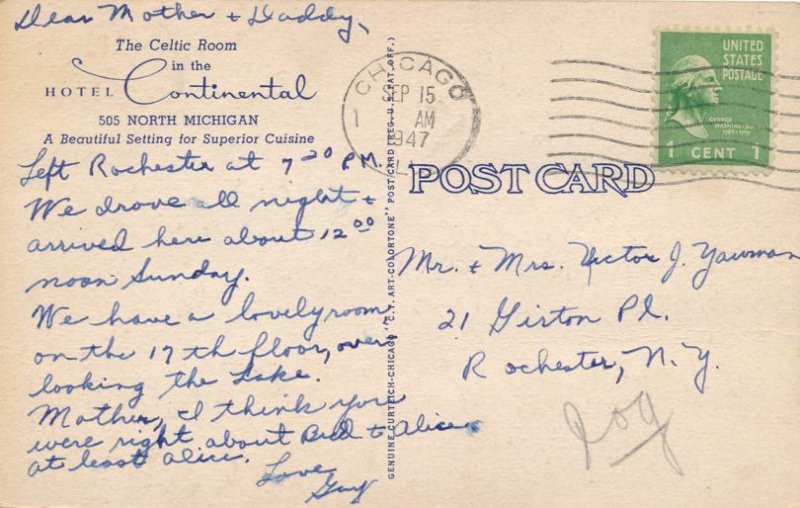 Dear Mother + Daddy,
The Celtic Room
in the
HOTEL Continental
505 NORTH MICHIGAN
A Beautiful Setting for Superior Cuisine
Left Rochester at 7 20 P.M.
We drove all night +
arrived here about 12 00
noon Sunday.
We have a lovely room
on the 17th floor, over
looking the Lake.
Mother, I think you
were right about Bud + Alice
at least Alice.
Love
GENUINE CURTEICH-CHICAGO "C.T. ART-COLORTONE" POST CARD (REG. U.S. PAT. OFF.)
CHICAGO
SEP 15
1 AM
1947
ILL.
UNITED
STATES
POSTAGE
GEORGE
WASHINGTON
1 CENT 1
POST CARD
Mr. + Mrs. Victor J. Yawman
21 Girton Pl.
Rochester, N.Y.